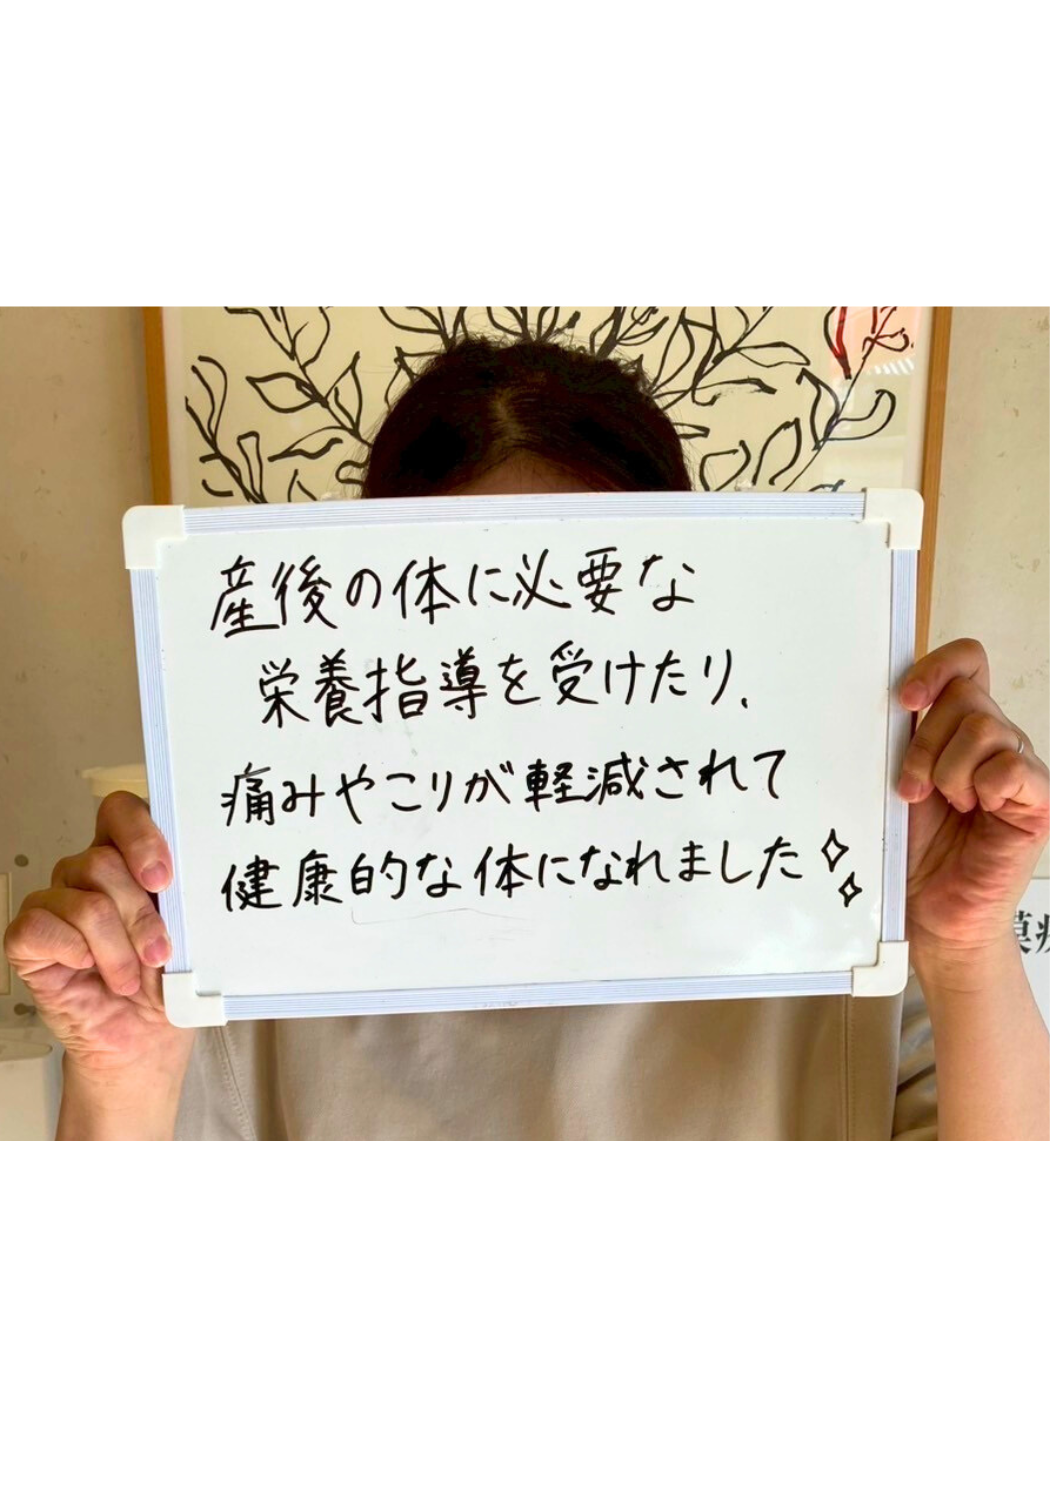 産後の体に必要な
栄養指導を受けたり、
痛みやこりが軽減されて
健康的な体になれました